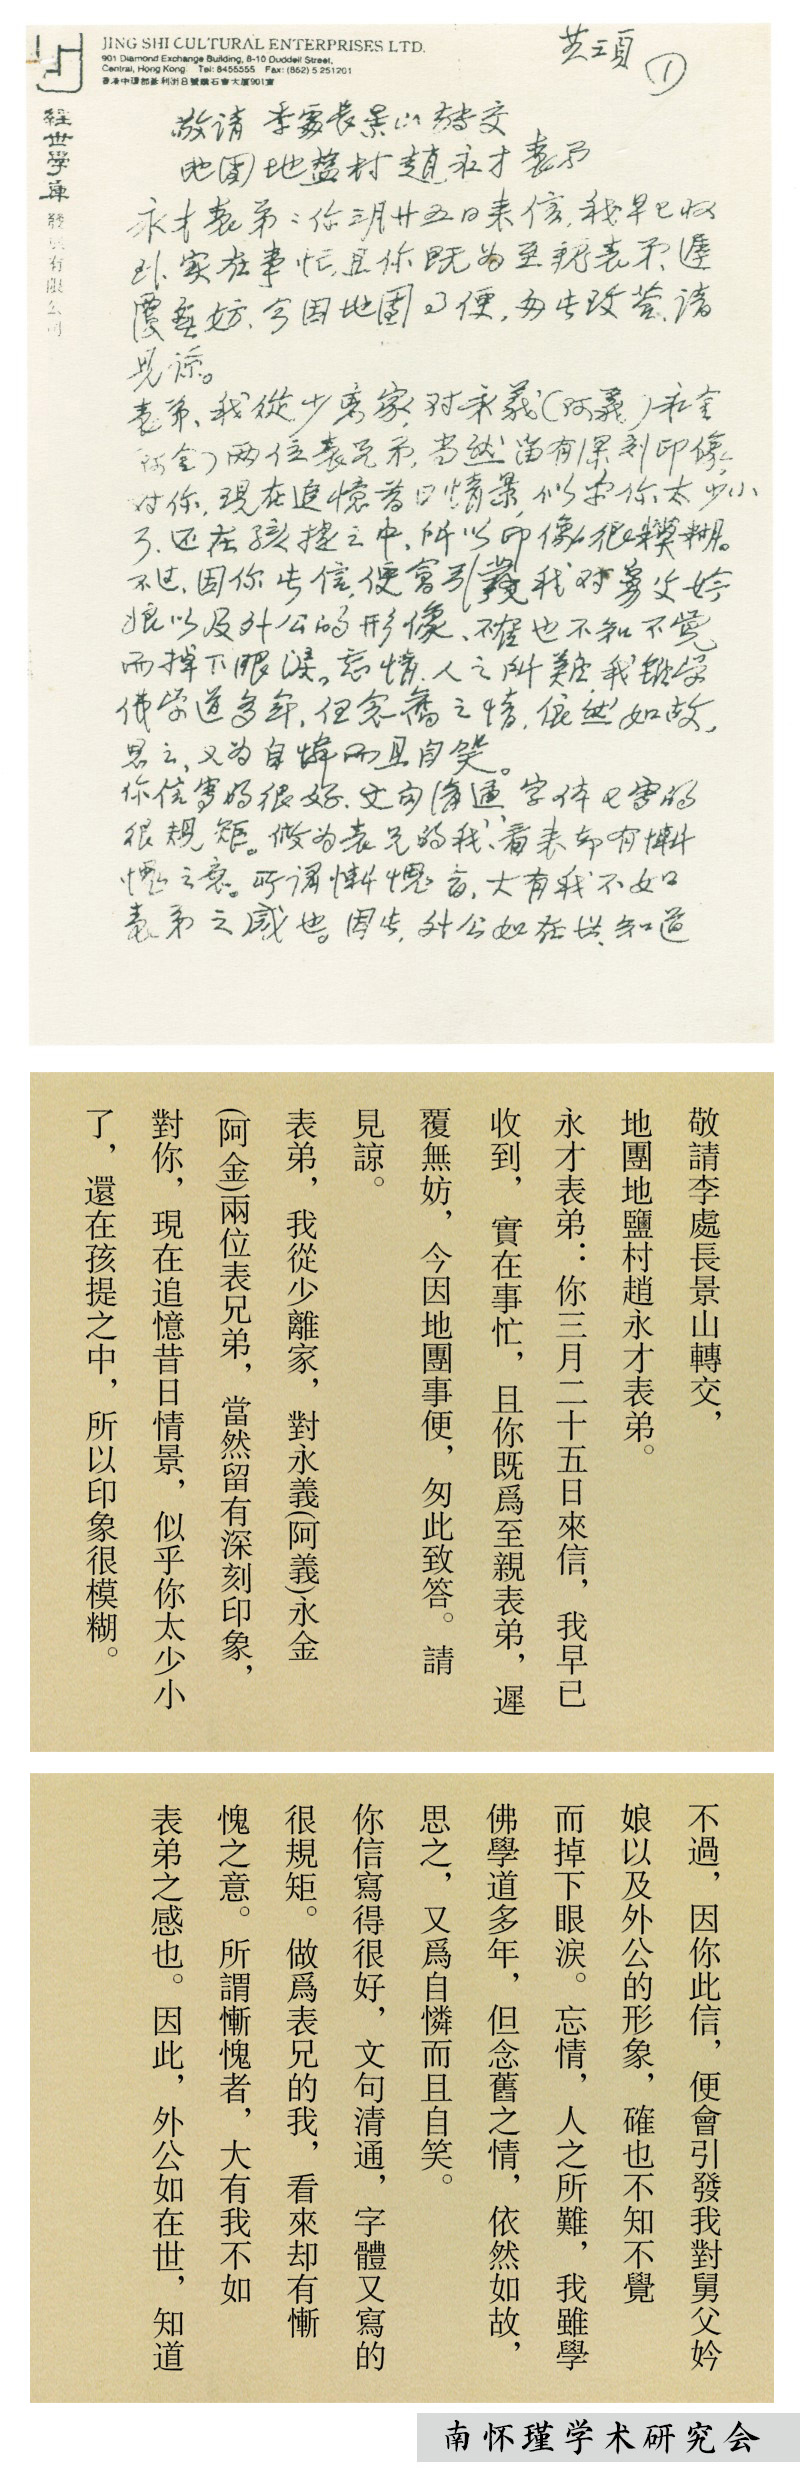 JING SHI CULTURAL ENTERPRISES LTD.
901 Diamond Exchange Building, 8-10 Duddell Street,
Central, Hong Kong Tel: 8455555 Fax: (852) 5 251201
香港中環都爹利街8號鑽石會大廈901室
經世學庫發展有限公司
共三頁 ①
敬请 李處長景山转交
地团地盐村趙永才表弟
永才表弟：你三月廿五日来信，我早已收
到、实在事忙，且你既为至親表弟，遲
覆無妨，今因地團之便，匆此致答，请
見谅。
表弟、我從少离家，对永義（阿義）永金
（阿金）两位表兄弟，当然留有深刻印像，
对你，現在追憶昔日情景，似乎你太少小
了，还在孩提之中，所以印像很糢糊。
不过，因你此信，便會引發我对舅父妗
娘以及外公的形像、確也不知不覺
而掉下眼淚。忘情，人之所難，我雖学
佛学道多年，但念舊之情，依然如故，
思之，又为自憐而且自笑。
你信寫的很好，文句清通，字体又寫的
很規矩。做为表兄的我，看来却有慚
愧之意。所谓慚愧者，大有我不如
表弟之感也。因此，外公如在世，知道
敬請李處長景山轉交，
地團地鹽村趙永才表弟。
永才表弟：你三月二十五日來信，我早已
收到，實在事忙，且你既爲至親表弟，遲
覆無妨，今因地團事便，匆此致答。請
見諒。
表弟，我從少離家，對永義(阿義)永金
(阿金)兩位表兄弟，當然留有深刻印象，
對你，現在追憶昔日情景，似乎你太少小
了，還在孩提之中，所以印象很模糊。
不過，因你此信，便會引發我對舅父妗
娘以及外公的形象，確也不知不覺
而掉下眼淚。忘情，人之所難，我雖學
佛學道多年，但念舊之情，依然如故，
思之，又爲自憐而且自笑。
你信寫得很好，文句清通，字體又寫的
很規矩。做爲表兄的我，看來却有慚
愧之意。所謂慚愧者，大有我不如
表弟之感也。因此，外公如在世，知道
南怀瑾学术研究会